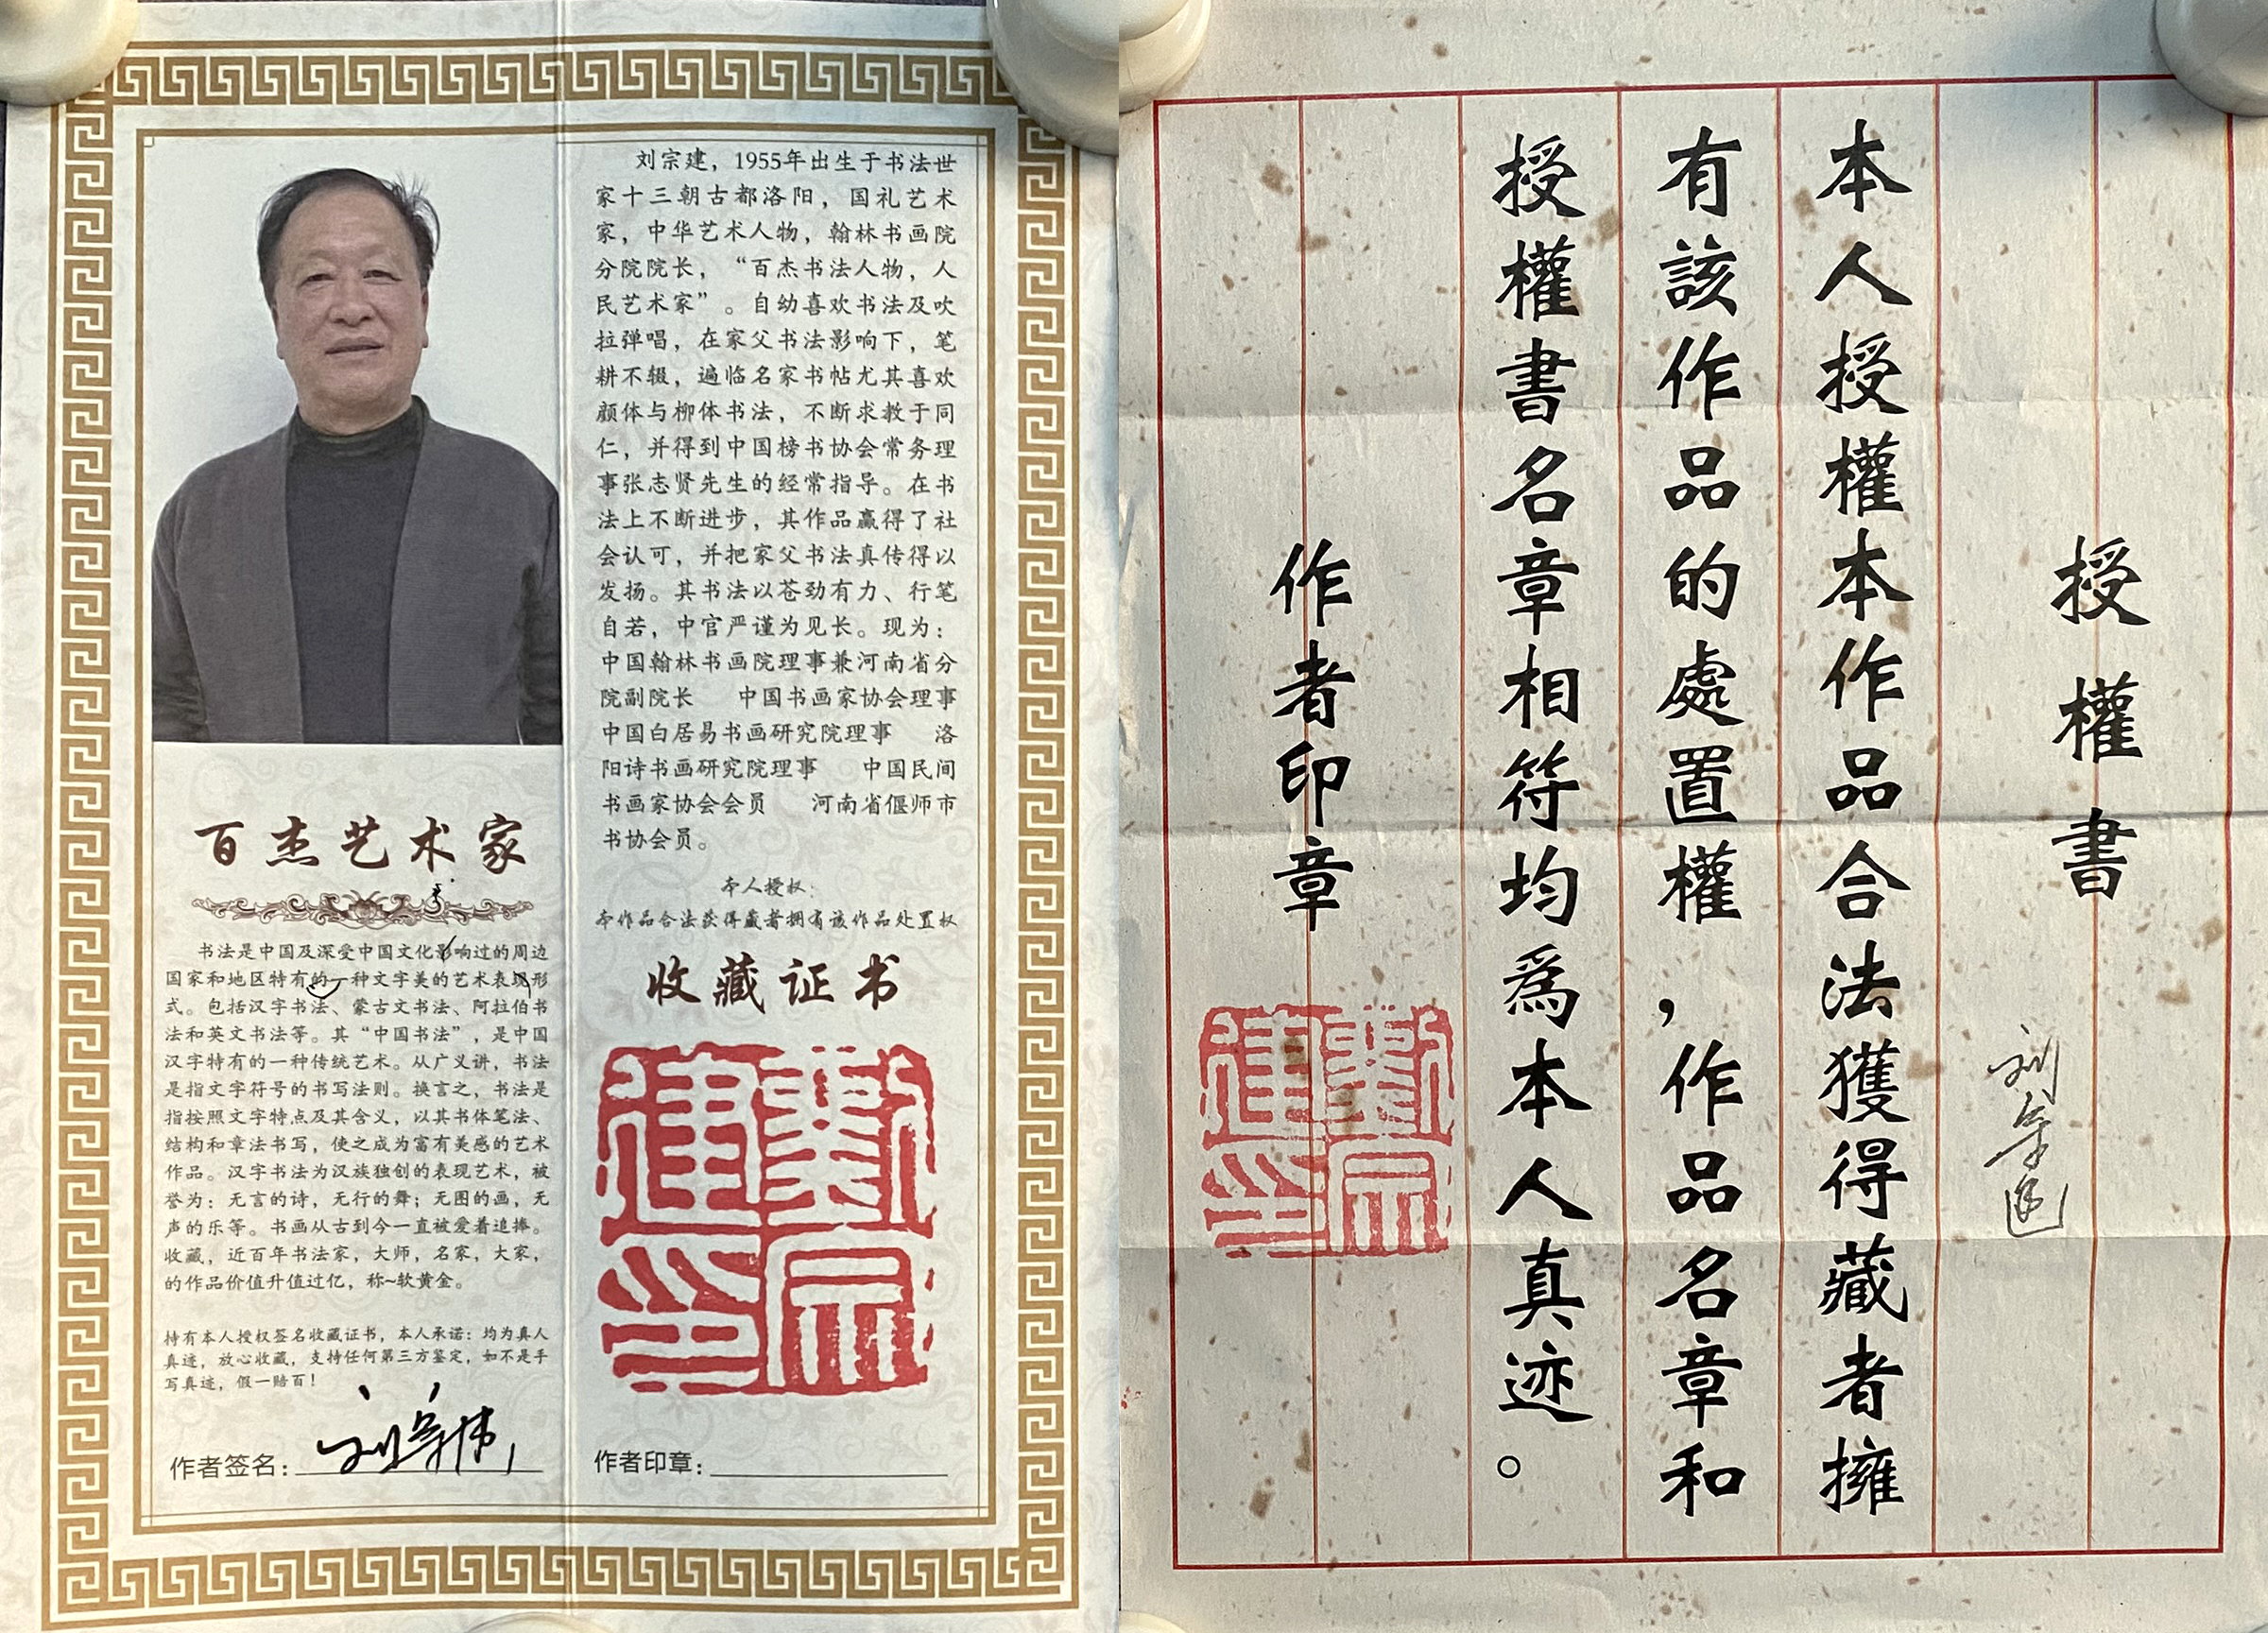 刘宗建，1955年出生于书法世
家十三朝古都洛阳，国礼艺术
家，中华艺术人物，翰林书画院
分院院长，“百杰书法人物，人
民艺术家”。自幼喜欢书法及吹
拉弹唱，在家父书法影响下，笔
耕不辍，遍临名家书帖尤其喜欢
颜体与柳体书法，不断求教于同
仁，并得到中国榜书协会常务理
事张志贤先生的经常指导。在书
法上不断进步，其作品赢得了社
会认可，并把家父书法真传得以
发扬。其书法以苍劲有力、行笔
自若，中官严谨为见长。现为：
中国翰林书画院理事兼河南省分
院副院长　中国书画家协会理事
中国白居易书画研究院理事　洛
阳诗书画研究院理事　中国民间
书画家协会会员　河南省偃师市
书协会员。
本人授权：
本作品合法获得藏者拥有该作品处置权
收藏证书
建 劉
印 宗
作者印章：
百杰艺术家
书法是中国及深受中国文化影响过的周边
国家和地区特有的一种文字美的艺术表现形
式。包括汉字书法、蒙古文书法、阿拉伯书
法和英文书法等。其“中国书法”，是中国
汉字特有的一种传统艺术。从广义讲，书法
是指文字符号的书写法则。换言之，书法是
指按照文字特点及其含义，以其书体笔法、
结构和章法书写，使之成为富有美感的艺术
作品。汉字书法为汉族独创的表现艺术，被
誉为：无言的诗，无行的舞；无图的画，无
声的乐等。书画从古到今一直被爱着追捧。
收藏，近百年书法家，大师，名家，大家，
的作品价值升值过亿，称~软黄金。
持有本人授权签名收藏证书，本人承诺：均为真人
真迹，放心收藏，支持任何第三方鉴定，如不是手
写真迹，假一赔百！
作者签名：刘宗建
授權書
刘宗建
本人授權本作品合法獲得藏者擁
有該作品的處置權，作品名章和
授權書名章相符均為本人真迹。
作者印章
建 劉
印 宗